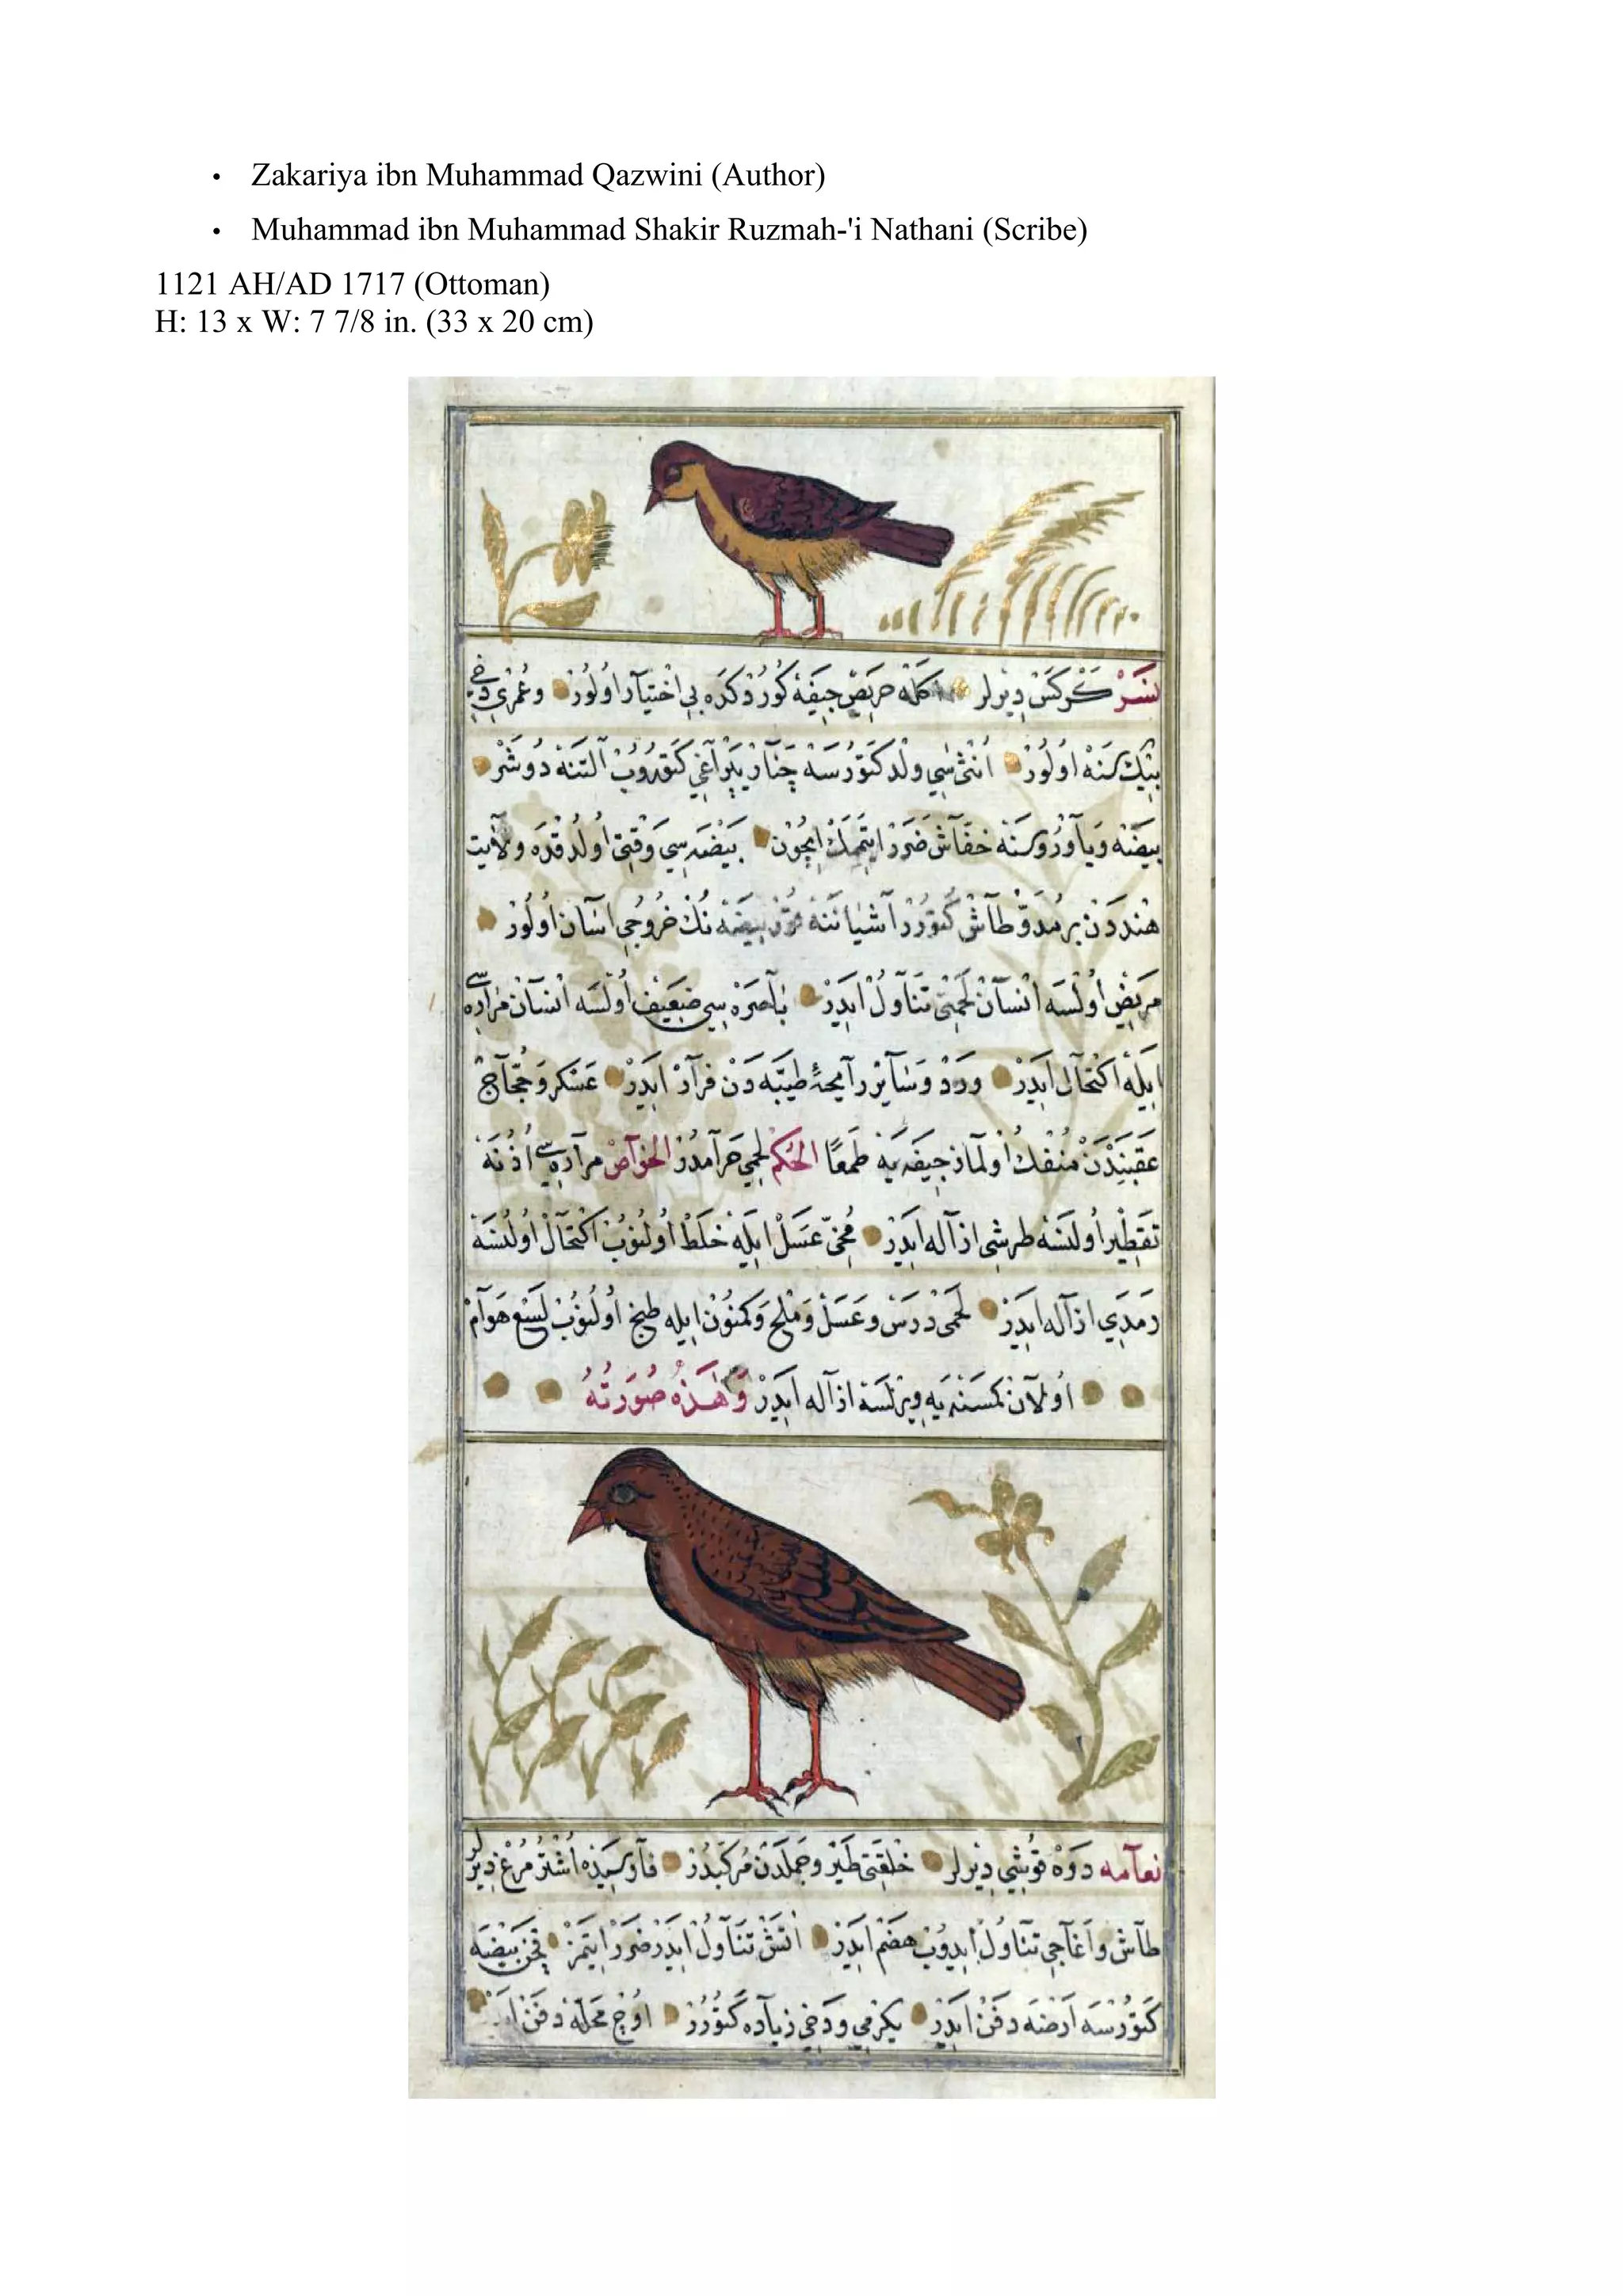 • Zakariya ibn Muhammad Qazwini (Author)
• Muhammad ibn Muhammad Shakir Ruzmah-'i Nathani (Scribe)
1121 AH/AD 1717 (Ottoman)
H: 13 x W: 7 7/8 in. (33 x 20 cm)
نسر كركس ديرلر حريص جيفه كورردكده بي اختيار اولور وعمري دخي
بيك سنه اولور انثى سي ولد كتورسه چنار يپراغي كتوروب آلتنه دوشر
بيضنه وياوروسنه خفاش ضرر ايتممك ايچون بيضه سي وقتى اولدقده ولايت
هندون بر مدور طاش كتورر آشياننه خروجي اسان اولور
مريض اولسه انسان لحمنى تناول ايدر باصره سي ضعيف اولسه انسان مراره سي
ايله اكتحال ايدر ورد وسائر رايحۀ طيبه دن فرار ايدر عسكر وحجاج
عقبندن منفك اولماز جيفه يه طمعا الحكم لحمي حرامدر الخواص مراره سي اذنه
تقطير اولنسه طرشى ازاله ايدر مخى عسل ايله خلط اولنوب اكتحال اولنسه
رمدي ازاله ايدر لحمى ورس وعسل وملح وكمون ايله طبخ اولنوب لسع هوام
اولان كمسنه يه ويرلسه ازاله ايدر وهذه صورته
نعامه دوه قوشي ديرلر خلقتى طير وجملدن مركبدر فارسيده اشتر مرغ ديرلر
طاش واغاجي تناول ايدوب هضم ايدر اتش تناول ايدر ضرر ايتمز قچن بيضه
كتورسه ارضه دفن ايدر يكرمي ودخي زياده كتورر اوچ محله دفن